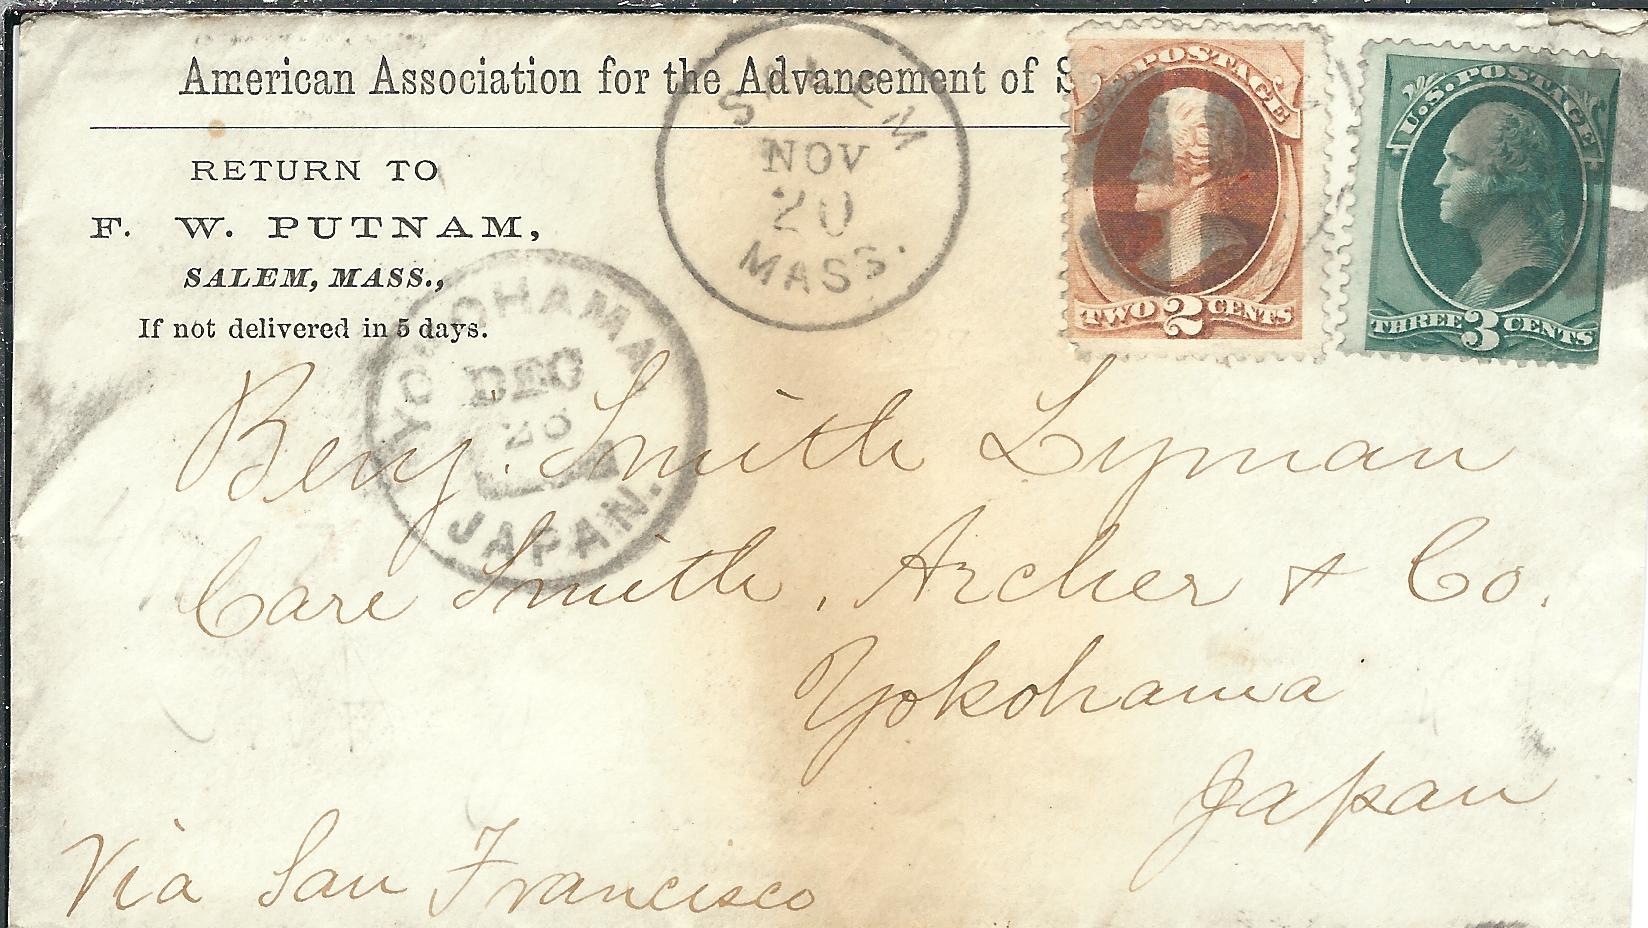 American Association for the Advancement of S
RETURN TO
F. W. PUTNAM,
SALEM, MASS.,
If not delivered in 5 days.
SALEM
NOV
20
MASS.
U.S. POSTAGE
TWO 2 CENTS
U.S. POSTAGE
THREE 3 CENTS
YOKOHAMA
DEC
JAPAN.
Benj. Smith Lyman
Care Smith, Archer & Co.
Yokohama
Japan
Via San Francisco